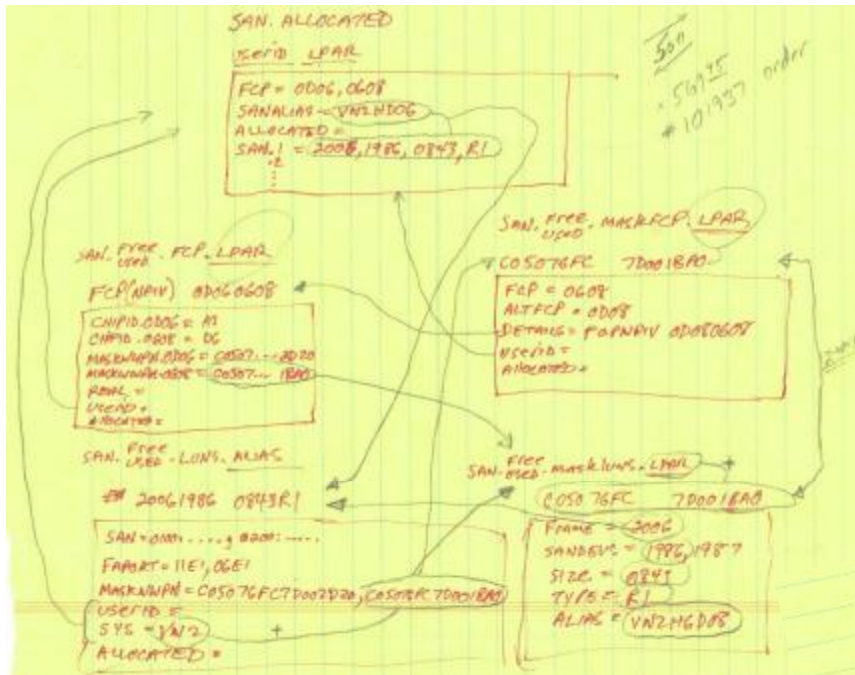 SAN. ALLOCATED
USERID LPAR
FCP = 0D06, 0608
SANALIAS = VN2HD06
ALLOCATED =
SAN.1 = 2006, 1986, 0843, R1
.2
5011
56975
# 101937 order
SAN. FREE USED . FCP. LPAR
FCP(NPIV) 0D060608
CHPID.0D06 = A1
CHPID.0608 = D6
MASKWWPN.0D06 = C0507...2D20
MASKWWPN.0608 = C0507... 1BA0
REAL =
USERID =
ALLOCATED =
SAN. FREE USED . MASKFCP. LPAR
C05076FC 7D001BA0
FCP = 0608
ALTFCP = 0D08
DETAILS = FCPNPIV 0D080608
USERID =
ALLOCATED =
SAN. FREE USED . LUNS. ALIAS
20061986 0843R1
FAPORT = 11E1, 06E1
MASKWWPN = C05076FC7D002D20, C05076FC7D001BA0
USERID =
SYS = VN2
+
ALLOCATED =
SAN. FREE USED . MASKLUNS. LPAR
+
C05076FC 7D001BA0
FRAME = 2006
SANDEVS = 1986, 1987
SIZE = 0843
TYPE = R1
ALIAS = VN2H6D08